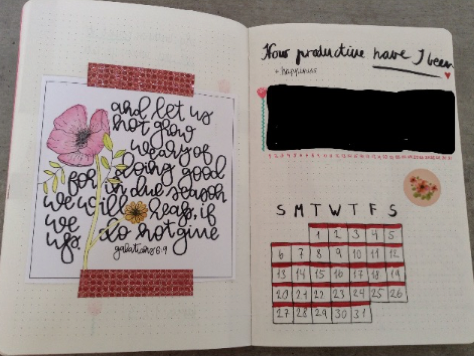 and let us
not grow
weary of
doing good
for in due season
we will reap, if
we do not give
up.
galatians 6:9
How productive have I been
+ happiness
S M T W T F S
1 2 3 4 5
6 7 8 9 10 11 12
13 14 15 16 17 18 19
20 21 22 23 24 25 26
27 28 29 30 31